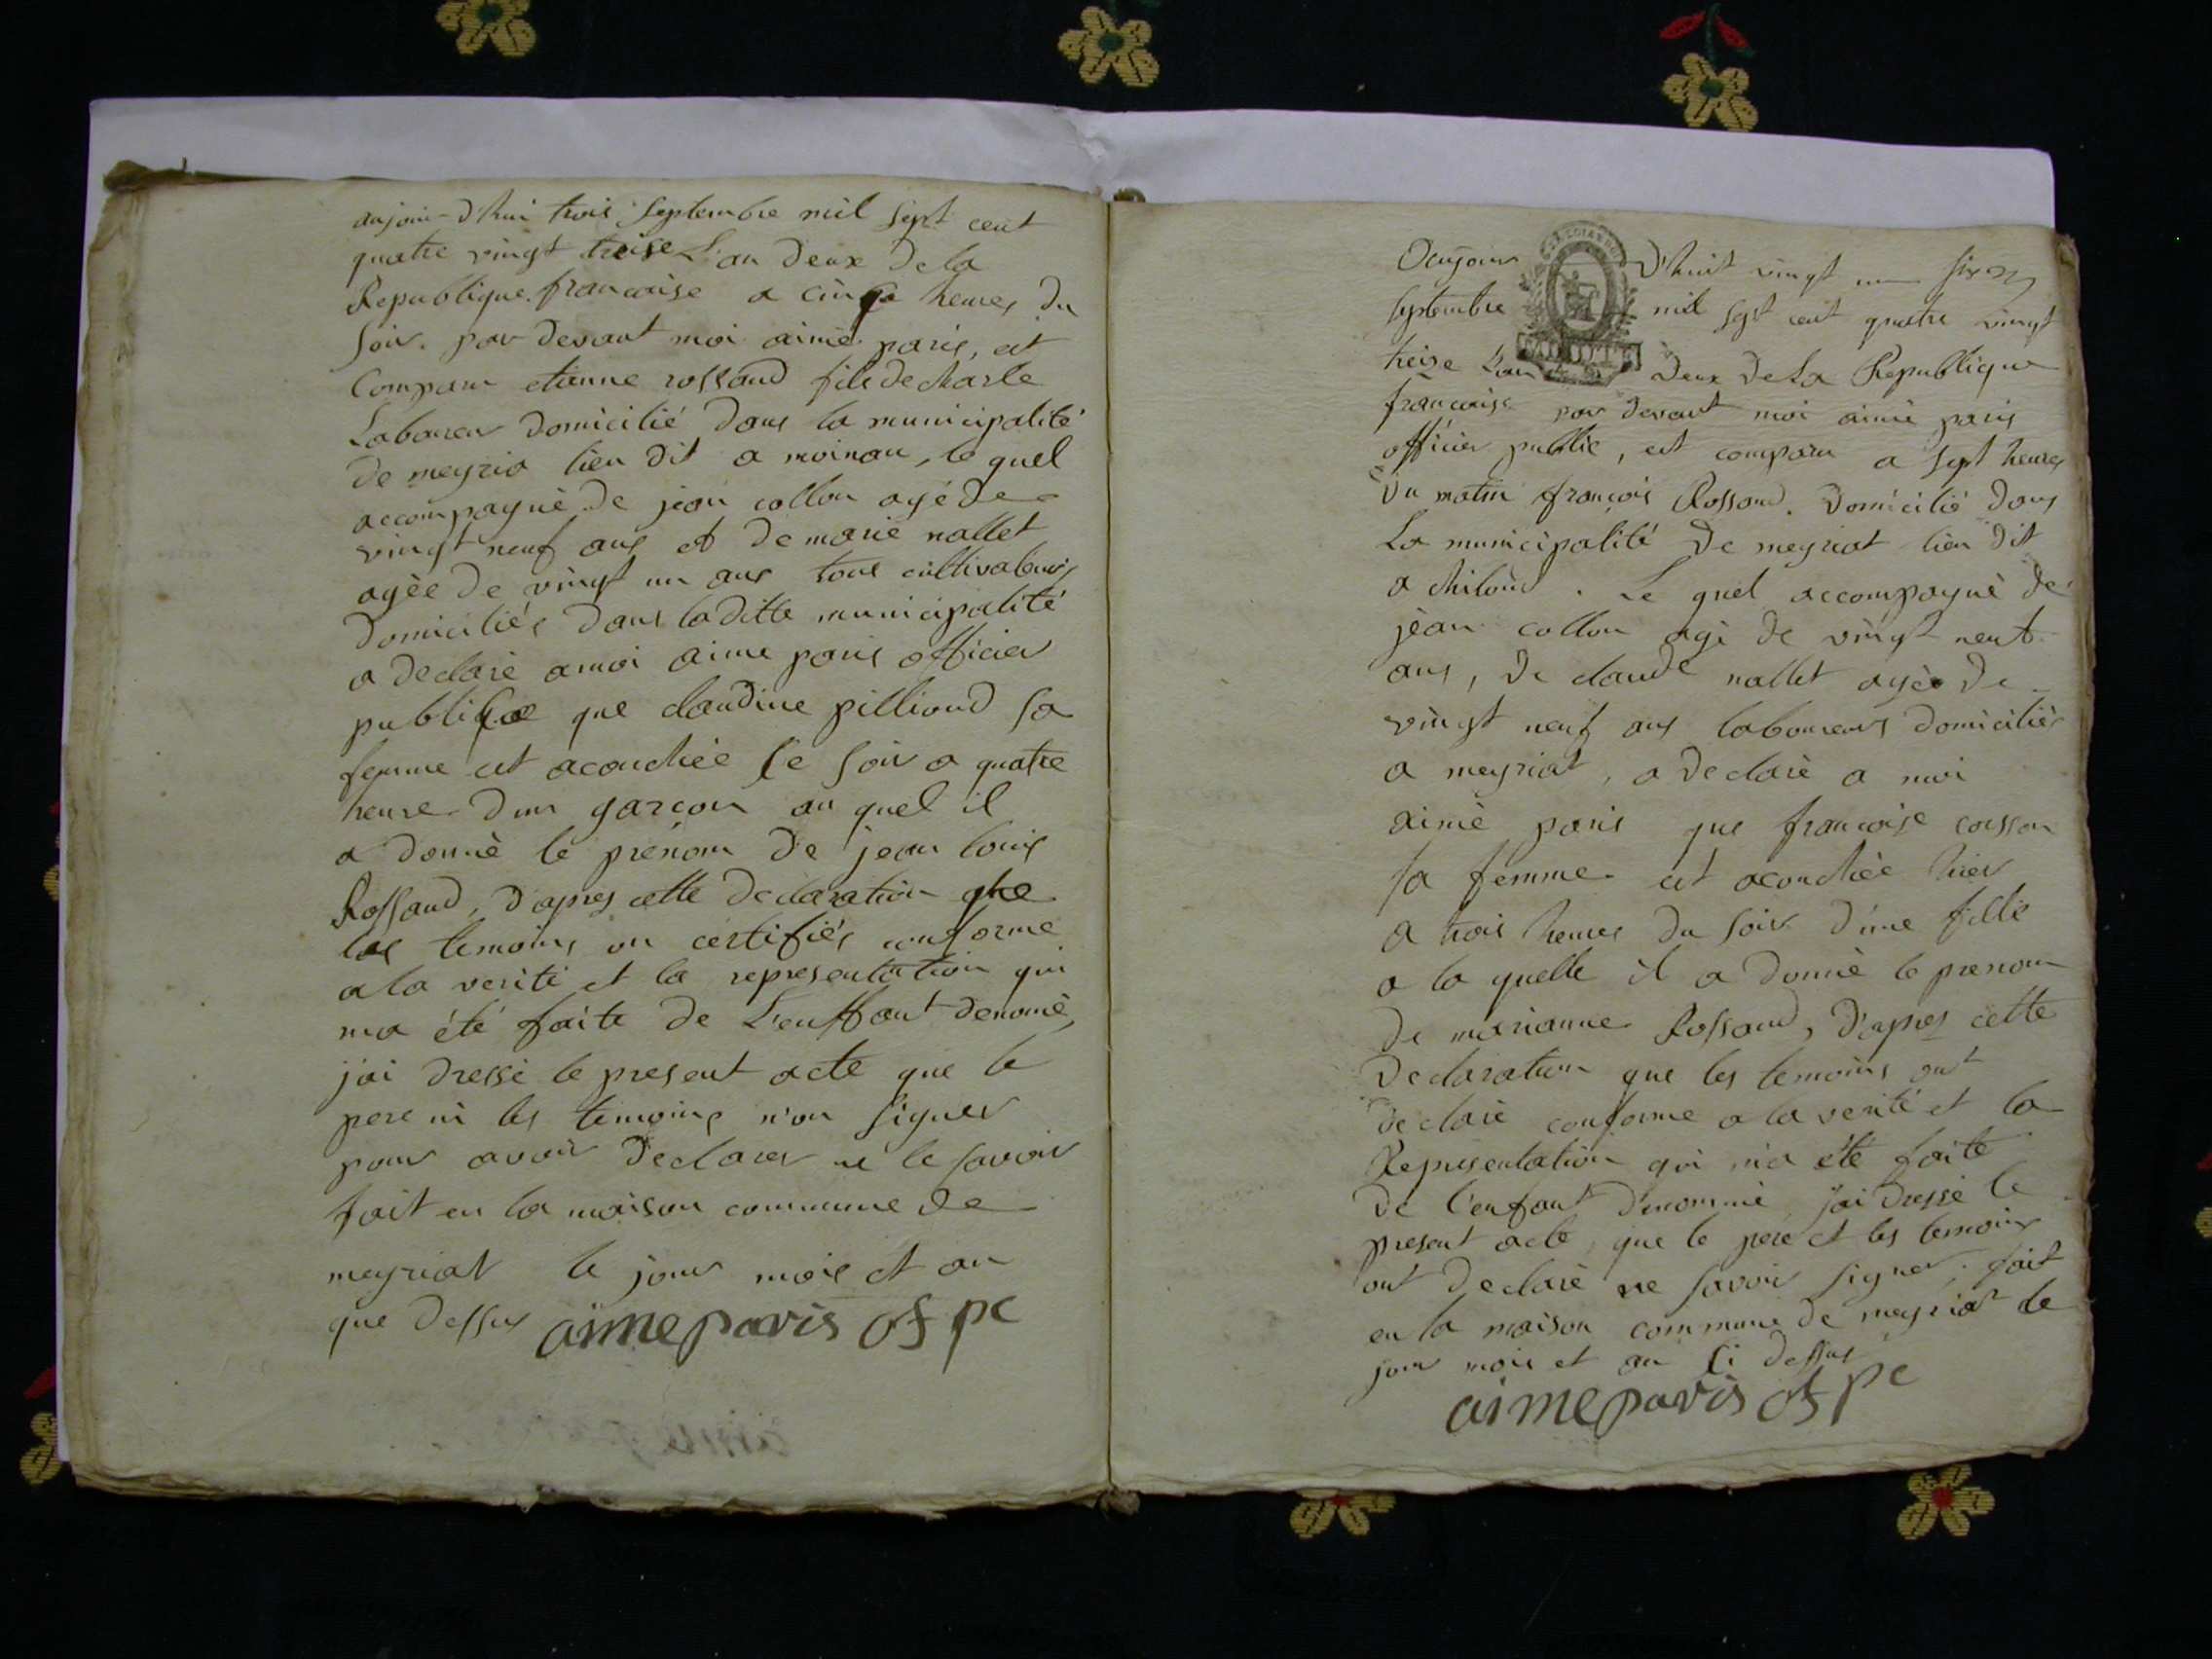 aujour-d'hui trois septembre mil sept cent
quatre vingt treise L'an deux de la
Republique francoise a cinq heures du
soir. par devant moi aimé paris, est
Comparu etienne rossand fils de charle
Laboureur domicilié dans la municipalité
de meyria lieu dit a moinan, le quel
accompagnè de jean collon agé de
vingt neuf ans et de marie nallet
agèe de vingt un ans tous cultivateurs
domiciliés dans laditte municipalité
a declarè a moi aime paris officier
publique que claudine pilliond sa
femme est acouchèe ce soir a quatre
heure d'un garcon au quel il
a donnè le prénom de jean louis
Rossand, d'apres cette declaration que
les temoins on certifiés conforme
a la verité et la representation qui
ma été faite de L'enffant denomè,
jai dressé le present acte que le
pere ni les temoins n'on signer
pour avoir declarer ne le savoir
fait en la maison commune de
meyriat le jour mois et an
que dessus aime paris of pc
Oaujour d'huit vingt un
septembre mil sept cent quatre vingt
treise L'an deux de La Republique
francoise par devant moi aimé paris
officier public, est comparu a sept heures
du matin françois Rossand. Domicilié dans
La municipalité de meyriat lieu dit
a chiloud. Le quel accompagnè de
jèan collon agé de vingt neuf
ans, de claude nallet agèe de
vingt neuf ans laboureurs domiciliés
a meyriat, a declarè a moi
aimè paris que francoise cosson
sa femme est acouchèe hier
a trois heures du soir d'une fille
a la quelle il a donnè le prenom
de marianne Rossand, d'apres cette
declaration que les temoins ont
declaré conforme a la verité et la
Representation qui m'a été faite
de l'enfant dénommé, jai dressé le
present acte, que le pere et les temoins
ont declarè ne savoir signer. fait
en la maison commune de meyriat le
jour mois et an ci dessus
aime paris of pc